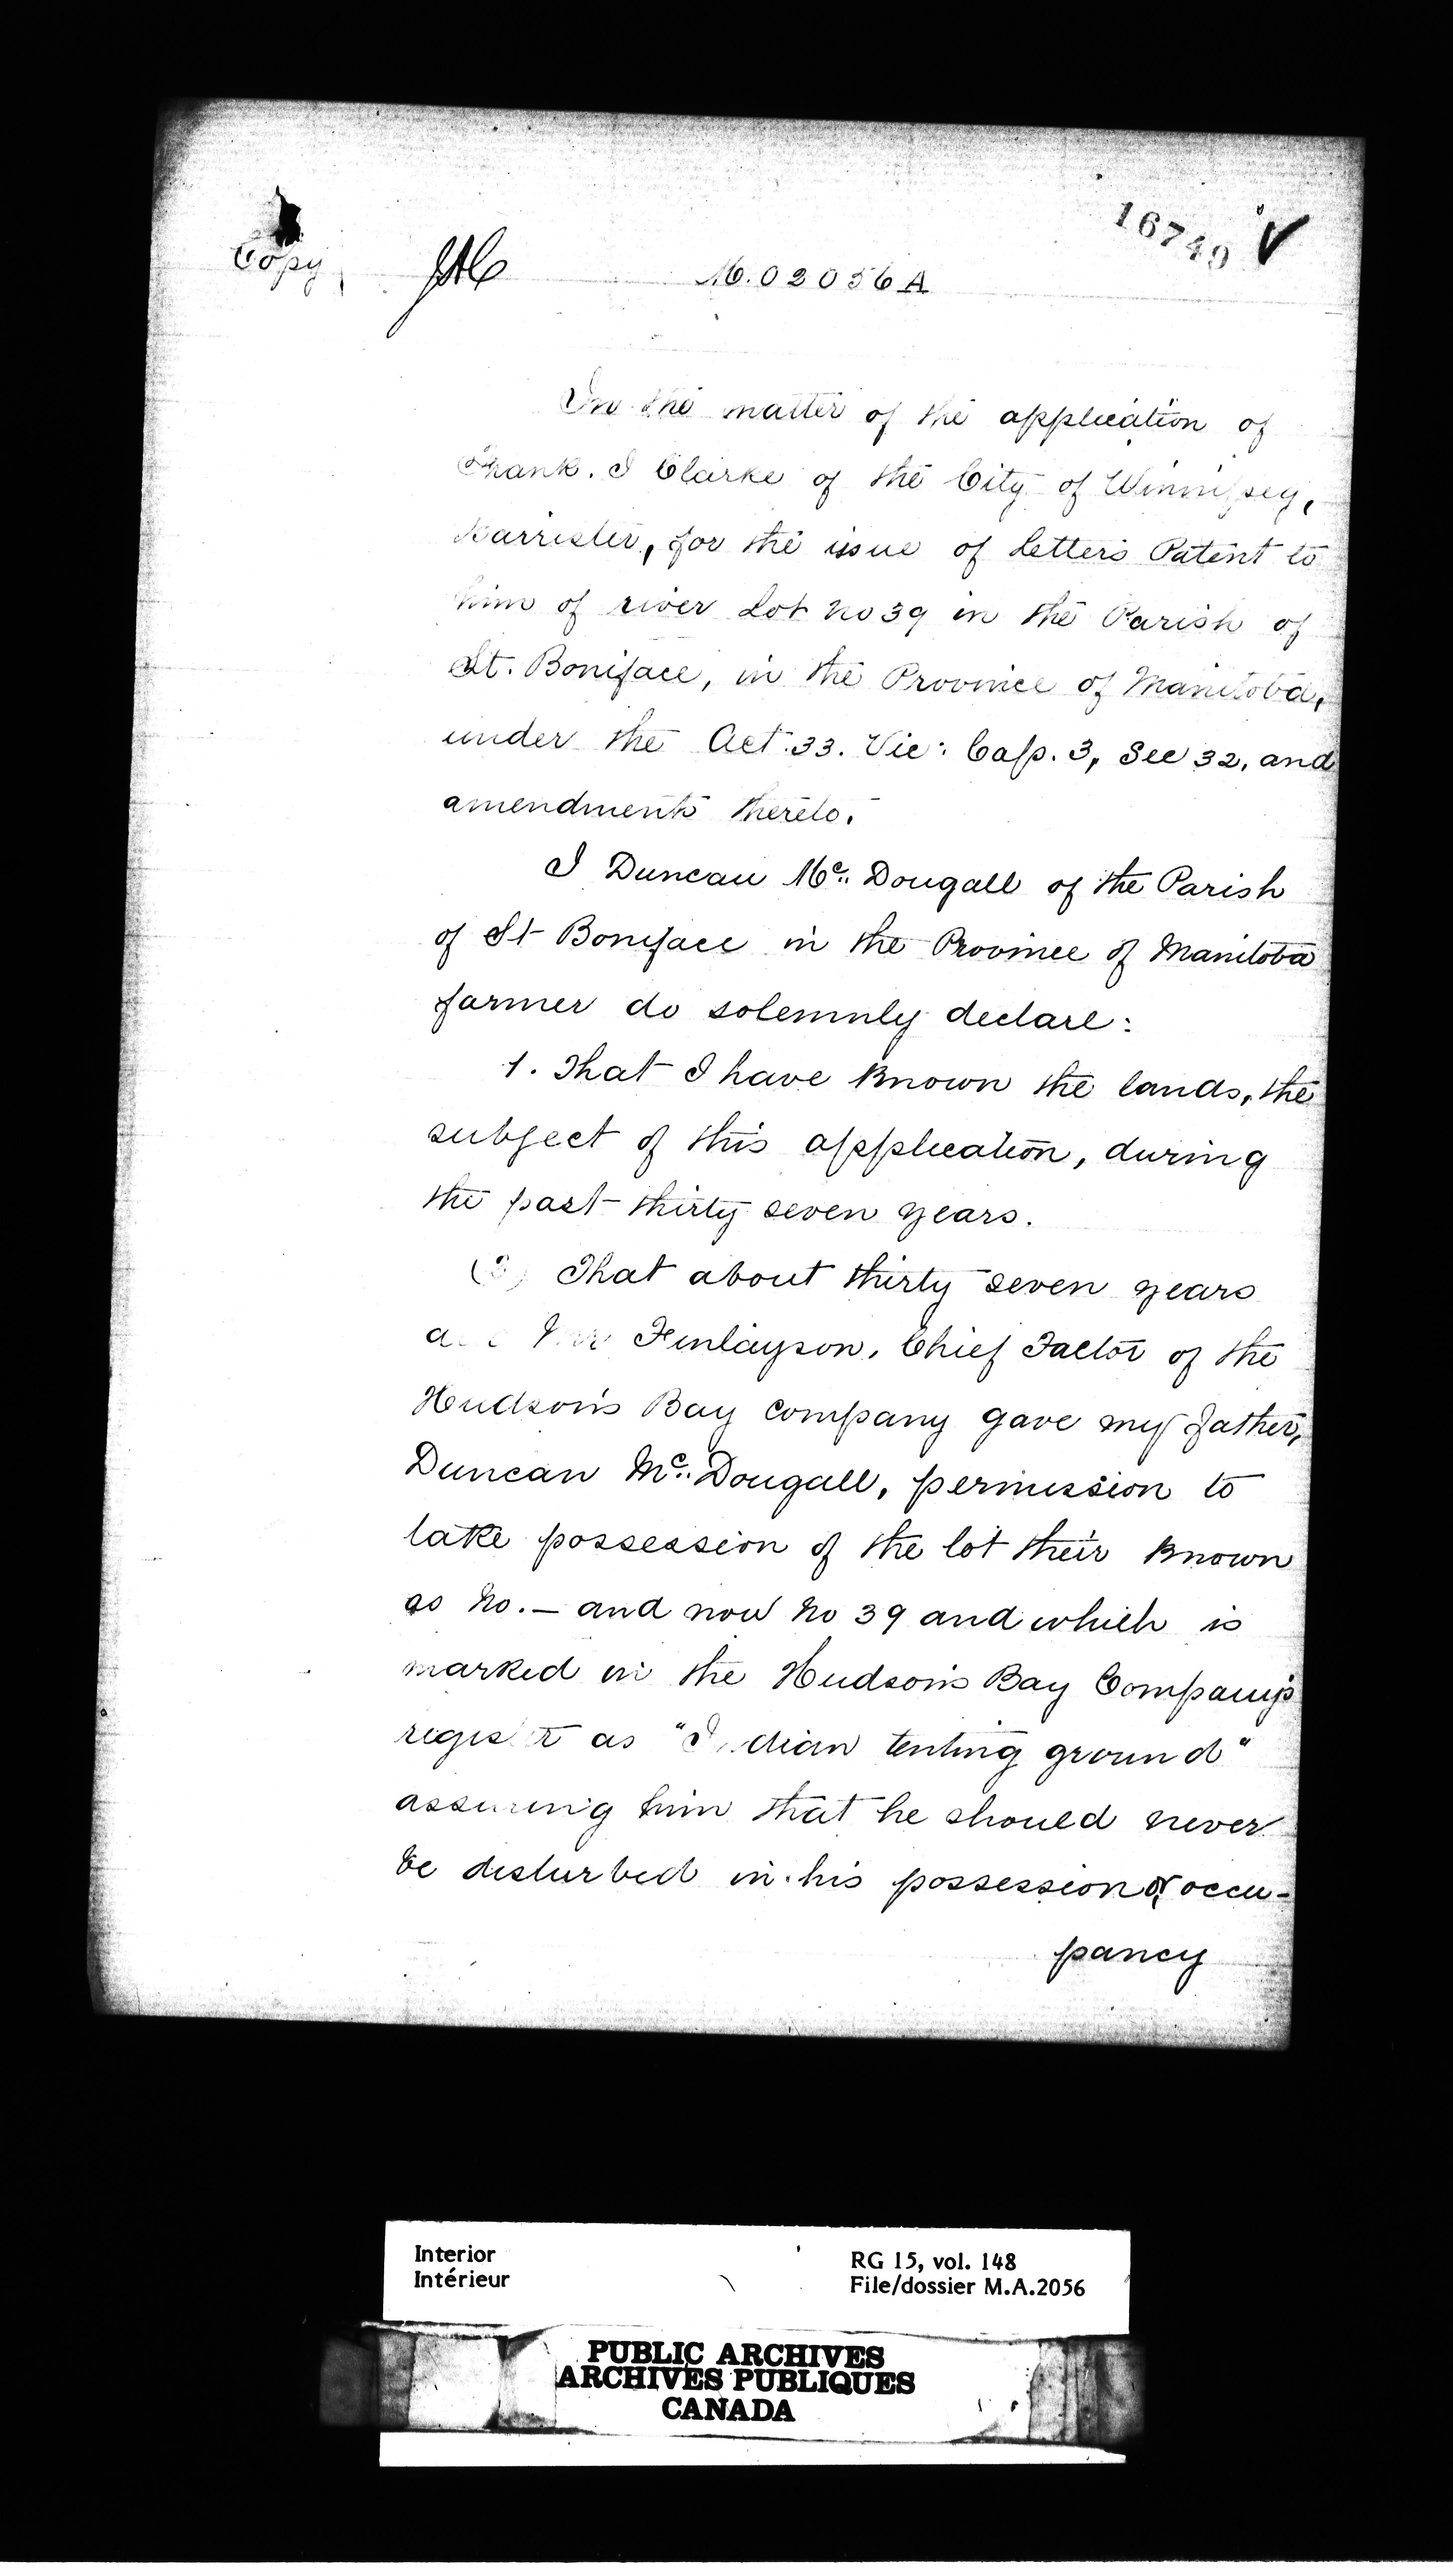 16749
Copy
M.02056A
In the matter of the application of
Frank. I Clarke of the City of Winnipeg,
Barrister, for the issue of Letters Patent to
him of river Lot No 39 in the Parish of
St. Boniface, in the Province of Manitoba,
under the Act. 33. Vic: Cap. 3, Sec 32, and
amendments thereto.
I Duncan Mc Dougall of the Parish
of St Boniface in the Province of Manitoba
farmer do solemnly declare:
1. That I have known the lands, the
subject of this application, during
the past thirty seven years.
(2) That about thirty seven years
Mr Finlayson, Chief Factor of the
Hudson's Bay Company gave my father,
Duncan Mc Dougall, permission to
take possession of the lot their known
as No. — and now No 39 and which is
marked in the Hudson's Bay Company's
register as "Indian tenting ground"
assuring him that he should never
be disturbed in his possession or occu-
pancy
Interior
Intérieur
RG 15, vol. 148
File/dossier M.A.2056
PUBLIC ARCHIVES
ARCHIVES PUBLIQUES
CANADA